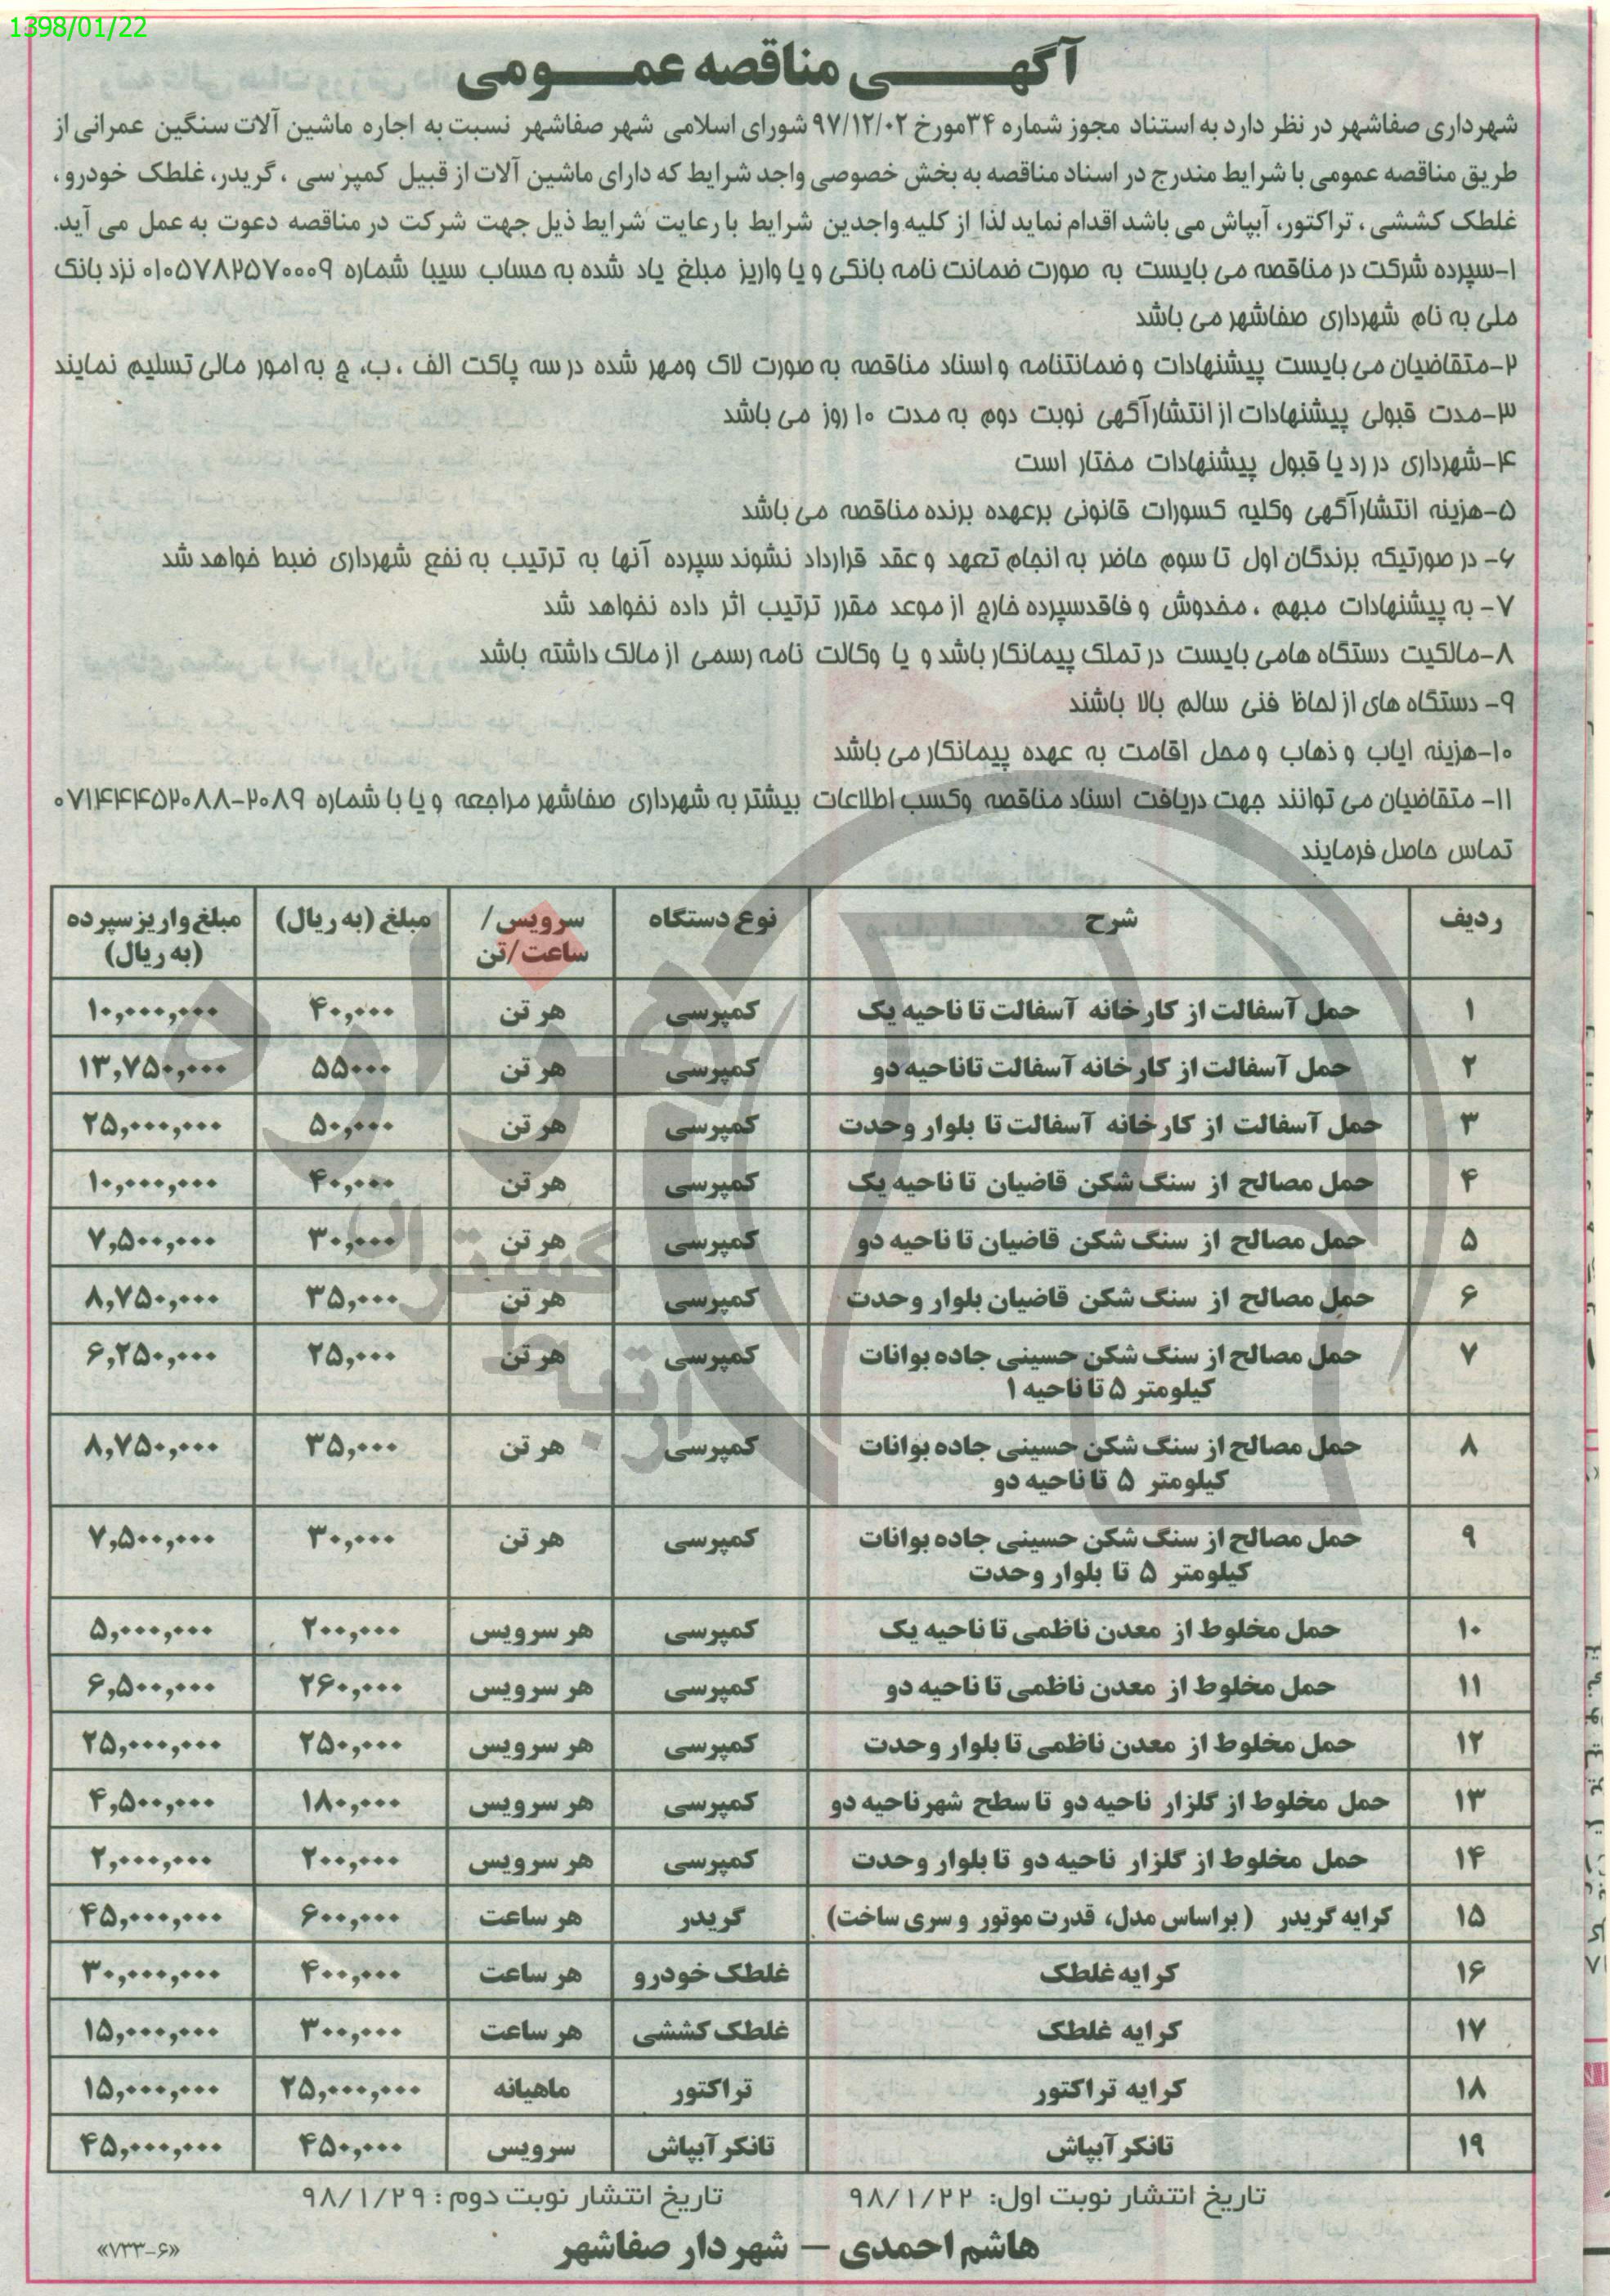 1398/01/22
آگهی مناقصه عمومی
شهرداری صفاشهر در نظر دارد به استناد مجوز شماره ۳۴مورخ ۹۷/۱۲/۰۲ شورای اسلامی شهر صفاشهر نسبت به اجاره ماشین آلات سنگین عمرانی از
طریق مناقصه عمومی با شرایط مندرج در اسناد مناقصه به بخش خصوصی واجد شرایط که دارای ماشین آلات از قبیل کمپرسی ، گریدر، غلطک خودرو ،
غلطک کششی ، تراکتور، آبپاش می باشد اقدام نماید لذا از کلیه واجدین شرایط با رعایت شرایط ذیل جهت شرکت در مناقصه دعوت به عمل می آید.
۱-سپرده شرکت در مناقصه می بایست به صورت ضمانت نامه بانکی و یا واریز مبلغ یاد شده به حساب سیبا شماره ۰۱۰۵۷۸۲۵۷۰۰۰۹ نزد بانک
ملی به نام شهرداری صفاشهر می باشد
۲-متقاضیان می بایست پیشنهادات و ضمانتنامه و اسناد مناقصه به صورت لاک ومهر شده در سه پاکت الف ، ب، ج به امور مالی تسلیم نمایند
۳-مدت قبولی پیشنهادات از انتشارآگهی نوبت دوم به مدت ۱۰ روز می باشد
۴-شهرداری در رد یا قبول پیشنهادات مختار است
۵-هزینه انتشارآگهی وکلیه کسورات قانونی برعهده برنده مناقصه می باشد
۶- در صورتیکه برندگان اول تا سوم حاضر به انجام تعهد و عقد قرارداد نشوند سپرده آنها به ترتیب به نفع شهرداری ضبط خواهد شد
۷- به پیشنهادات مبهم ، مخدوش و فاقدسپرده خارج از موعد مقرر ترتیب اثر داده نخواهد شد
۸-مالکیت دستگاه هامی بایست در تملک پیمانکار باشد و یا وکالت نامه رسمی از مالک داشته باشد
۹- دستگاه های از لحاظ فنی سالم بالا باشند
۱۰-هزینه ایاب و ذهاب و محل اقامت به عهده پیمانکار می باشد
۱۱- متقاضیان می توانند جهت دریافت اسناد مناقصه وکسب اطلاعات بیشتر به شهرداری صفاشهر مراجعه و یا با شماره ۲۰۸۹-۰۷۱۴۴۴۵۲۰۸۸
تماس حاصل فرمایند
ردیف شرح نوع دستگاه سرویس/ ساعت/تن مبلغ (به ریال) مبلغ واریز سپرده (به ریال)
۱ حمل آسفالت از کارخانه آسفالت تا ناحیه یک کمپرسی هر تن ۴۰,۰۰۰ ۱۰,۰۰۰,۰۰۰
۲ حمل آسفالت از کارخانه آسفالت تاناحیه دو کمپرسی هر تن ۵۵۰۰۰ ۱۳,۷۵۰,۰۰۰
۳ حمل آسفالت از کارخانه آسفالت تا بلوار وحدت کمپرسی هر تن ۵۰,۰۰۰ ۲۵,۰۰۰,۰۰۰
۴ حمل مصالح از سنگ شکن قاضیان تا ناحیه یک کمپرسی هر تن ۴۰,۰۰۰ ۱۰,۰۰۰,۰۰۰
۵ حمل مصالح از سنگ شکن قاضیان تا ناحیه دو کمپرسی هر تن ۳۰,۰۰۰ ۷,۵۰۰,۰۰۰
۶ حمل مصالح از سنگ شکن قاضیان بلوار وحدت کمپرسی هر تن ۳۵,۰۰۰ ۸,۷۵۰,۰۰۰
۷ حمل مصالح از سنگ شکن حسینی جاده بوانات کمپرسی هر تن ۲۵,۰۰۰ ۶,۲۵۰,۰۰۰
کیلومتر ۵ تا ناحیه ۱
۸ حمل مصالح از سنگ شکن حسینی جاده بوانات کمپرسی هر تن ۳۵,۰۰۰ ۸,۷۵۰,۰۰۰
کیلومتر ۵ تا ناحیه دو
۹ حمل مصالح از سنگ شکن حسینی جاده بوانات کمپرسی هر تن ۳۰,۰۰۰ ۷,۵۰۰,۰۰۰
کیلومتر ۵ تا بلوار وحدت
۱۰ حمل مخلوط از معدن ناظمی تا ناحیه یک کمپرسی هر سرویس ۲۰۰,۰۰۰ ۵,۰۰۰,۰۰۰
۱۱ حمل مخلوط از معدن ناظمی تا ناحیه دو کمپرسی هر سرویس ۲۶۰,۰۰۰ ۶,۵۰۰,۰۰۰
۱۲ حمل مخلوط از معدن ناظمی تا بلوار وحدت کمپرسی هر سرویس ۲۵۰,۰۰۰ ۲۵,۰۰۰,۰۰۰
۱۳ حمل مخلوط از گلزار ناحیه دو تا سطح شهر ناحیه دو کمپرسی هر سرویس ۱۸۰,۰۰۰ ۴,۵۰۰,۰۰۰
۱۴ حمل مخلوط از گلزار ناحیه دو تا بلوار وحدت کمپرسی هر سرویس ۲۰۰,۰۰۰ ۲,۰۰۰,۰۰۰
۱۵ کرایه گریدر (براساس مدل، قدرت موتور و سری ساخت) گریدر هر ساعت ۶۰۰,۰۰۰ ۴۵,۰۰۰,۰۰۰
۱۶ کرایه غلطک غلطک خودرو هر ساعت ۴۰۰,۰۰۰ ۳۰,۰۰۰,۰۰۰
۱۷ کرایه غلطک غلطک کششی هر ساعت ۳۰۰,۰۰۰ ۱۵,۰۰۰,۰۰۰
۱۸ کرایه تراکتور تراکتور ماهیانه ۲۵,۰۰۰,۰۰۰ ۱۵,۰۰۰,۰۰۰
۱۹ تانکر آبپاش تانکر آبپاش سرویس ۴۵۰,۰۰۰ ۴۵,۰۰۰,۰۰۰
تاریخ انتشار نوبت اول: ۹۸/۱/۲۲ تاریخ انتشار نوبت دوم : ۹۸/۱/۲۹
هاشم احمدی – شهردار صفاشهر
«۷۳۳-۶»
هزاره
گستران
ارتباط